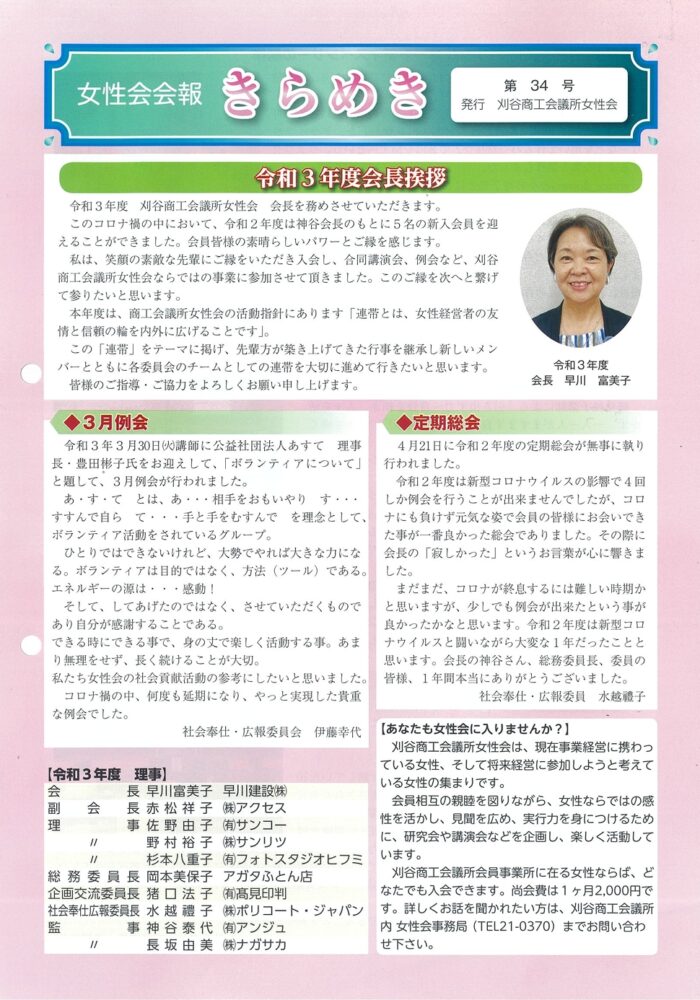 女性会会報 きらめき
第 34 号
発行 刈谷商工会議所女性会
令和3年度会長挨拶
令和3年度 刈谷商工会議所女性会 会長を務めさせていただきます。
このコロナ禍の中において、令和2年度は神谷会長のもとに5名の新入会員を迎
えることができました。会員皆様の素晴らしいパワーとご縁を感じます。
私は、笑顔の素敵な先輩にご縁をいただき入会し、合同講演会、例会など、刈谷
商工会議所女性会ならではの事業に参加させて頂きました。このご縁を次へと繋げ
て参りたいと思います。
本年度は、商工会議所女性会の活動指針にあります「連帯とは、女性経営者の友
情と信頼の輪を内外に広げることです」。
この「連帯」をテーマに掲げ、先輩方が築き上げてきた行事を継承し新しいメン
バーとともに各委員会のチームとしての連帯を大切に進めて行きたいと思います。
皆様のご指導・ご協力をよろしくお願い申し上げます。
令和3年度
会長 早川 富美子
◆3月例会
令和3年3月30日㈫講師に公益社団法人あすて 理事
長・豊田彬子氏をお迎えして、「ボランティアについて」
と題して、3月例会が行われました。
あ・す・て とは、あ・・・相手をおもいやり す・・・
すすんで自ら て・・・手と手をむすんで を理念として、
ボランティア活動をされているグループ。
ひとりではできないけれど、大勢でやれば大きな力にな
る。ボランティアは目的ではなく、方法(ツール)である。
エネルギーの源は・・・感動!
そして、してあげたのではなく、させていただくもので
あり自分が感謝することである。
できる時にできる事で、身の丈で楽しく活動する事。あま
り無理をせず、長く続けることが大切。
私たち女性会の社会貢献活動の参考にしたいと思いました。
コロナ禍の中、何度も延期になり、やっと実現した貴重
な例会でした。
社会奉仕・広報委員会 伊藤幸代
◆定期総会
4月21日に令和2年度の定期総会が無事に執り
行われました。
令和2年度は新型コロナウイルスの影響で4回
しか例会を行うことが出来ませんでしたが、コロ
ナにも負けず元気な姿で会員の皆様にお会いでき
た事が一番良かった総会でありました。その際に
会長の「寂しかった」というお言葉が心に響きま
した。
まだまだ、コロナが終息するには難しい時期か
と思いますが、少しでも例会が出来たという事が
良かったかなと思います。令和2年度は新型コロ
ナウイルスと闘いながら大変な1年だったことと
思います。会長の神谷さん、総務委員長、委員の
皆様、1年間本当にありがとうございました。
社会奉仕・広報委員 水越禮子
【令和3年度 理事】
会長 早川富美子 早川建設㈱
副会長 赤松祥子 ㈱アクセス
理事 佐野由子 ㈲サンコー
〃 野村裕子 ㈱サンリツ
〃 杉本八重子 ㈲フォトスタジオヒフミ
総務委員長 岡本美保子 アガタふとん店
企画交流委員長 猪口法子 ㈲髙見印判
社会奉仕広報委員長 水越禮子 ㈱ポリコート・ジャパン
監事 神谷泰代 ㈲アンジュ
〃 長坂由美 ㈱ナガサカ
【あなたも女性会に入りませんか?】
刈谷商工会議所女性会は、現在事業経営に携わっ
ている女性、そして将来経営に参加しようと考えて
いる女性の集まりです。
会員相互の親睦を図りながら、女性ならではの感
性を活かし、見聞を広め、実行力を身につけるため
に、研究会や講演会などを企画し、楽しく活動して
います。
刈谷商工会議所会員事業所に在る女性ならば、ど
なたでも入会できます。尚会費は1ヶ月2,000円で
す。詳しくお話を聞かれたい方は、刈谷商工会議所
内 女性会事務局(TEL21-0370)までお問い合わ
せ下さい。